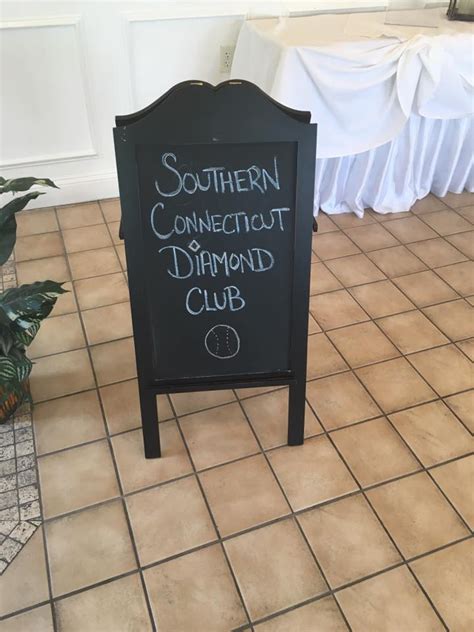 SOUTHERN
CONNECTICUT
DIAMOND
CLUB